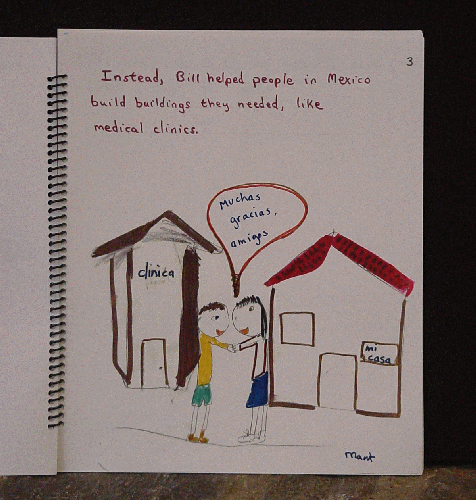 3
Instead, Bill helped people in Mexico
build buildings they needed, like
medical clinics.
Muchas
gracias,
amigos
clinica
mi
casa